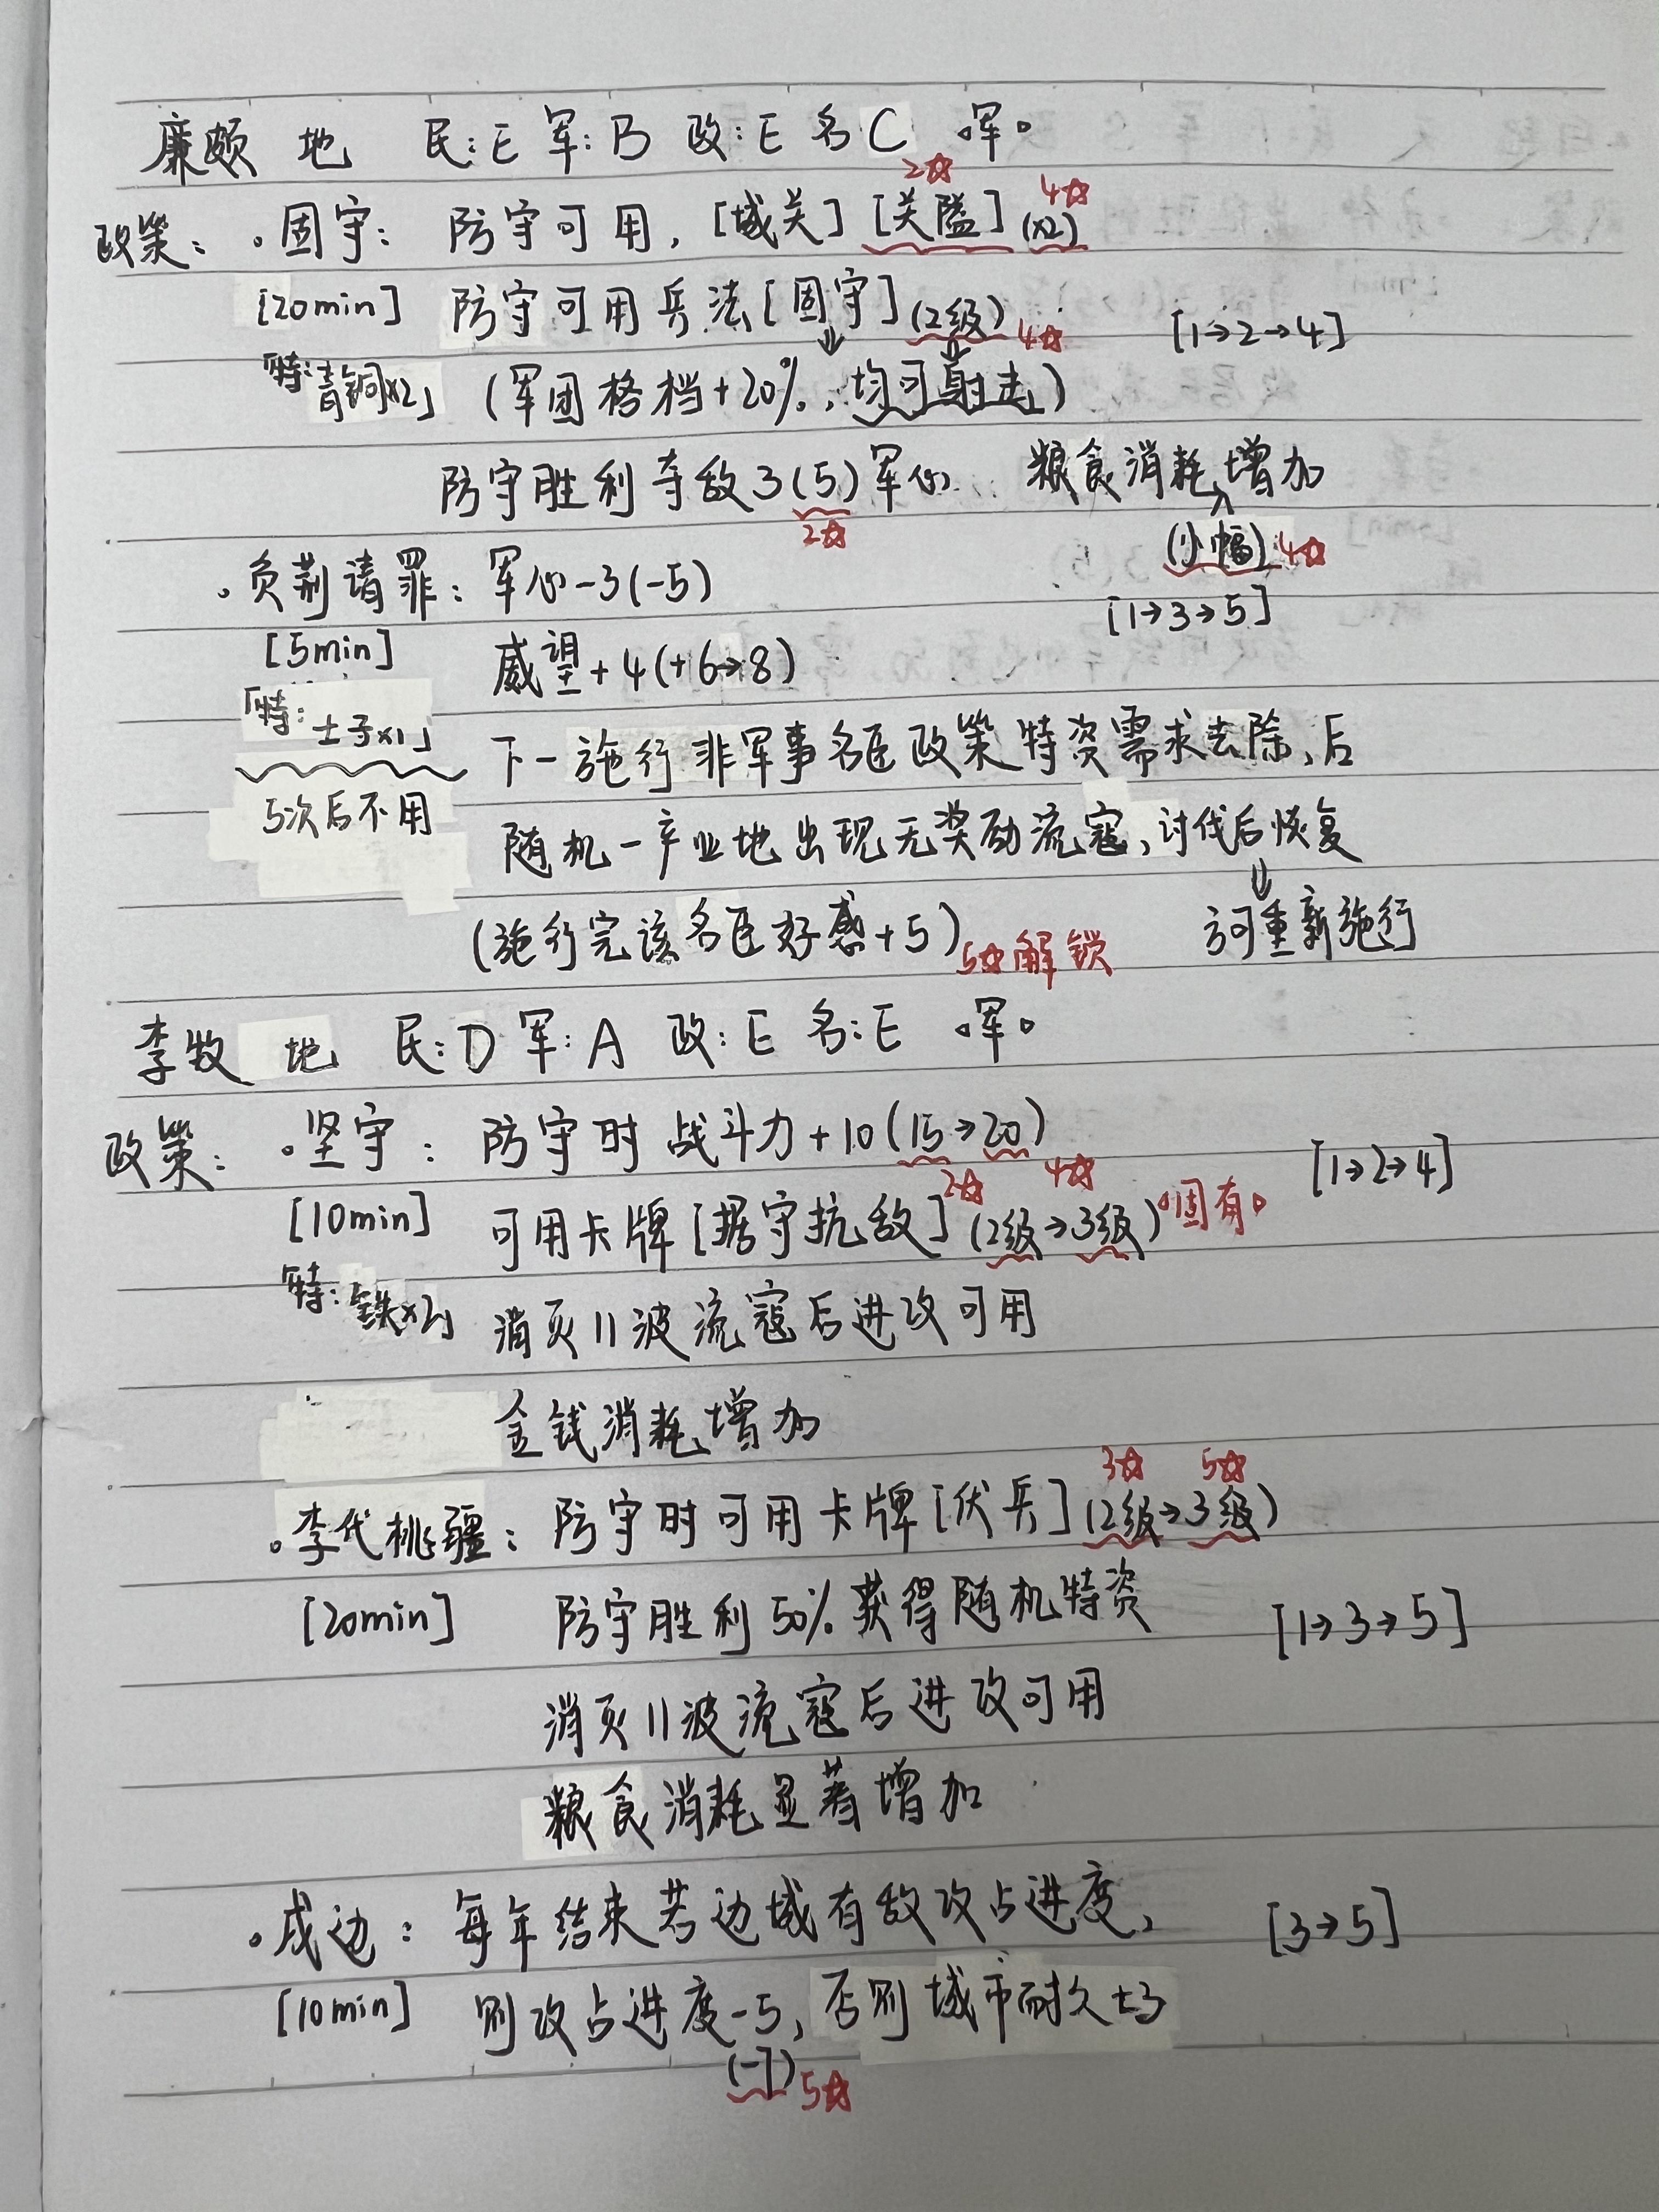 廉颇 地 民:E 军:B 政:E 名C 。军。
2☆ 4☆
政策: 。固守: 防守可用,[城关][关隘](x2)
[20min] 防守可用兵法[固守](2级)4☆ [1→2→4]
「特:青铜x2」 (军团格档+20%,均可射击)
防守胜利夺敌3(5)军心 粮食消耗增加
2☆ (小幅)4☆
。负荆请罪: 军心-3(-5) [1→3→5]
[5min] 威望+4(+6→8)
「特:士子x1」 下一施行非军事名臣政策特资需求去除,后
5次后不用 随机一产业地出现无奖励流寇,讨伐后恢复
(施行完该名臣好感+5)5☆解锁 方可重新施行
李牧 地 民:D 军:A 政:E 名:E 。军。
政策: 。坚守: 防守时战斗力+10(15→20) [1→2→4]
2☆ 4☆
[10min] 可用卡牌[据守抗敌](2级→3级)。固有。
「特:铁x2」 消灭11波流寇后进攻可用
金钱消耗增加
3☆ 5☆
。李代桃疆: 防守时可用卡牌[伏兵](2级→3级)
[20min] 防守胜利50%获得随机特资 [1→3→5]
消灭11波流寇后进攻可用
粮食消耗显著增加
。戍边: 每年结束若边城有敌攻占进度, [3→5]
[10min] 则攻占进度-5,否则城市耐久+3
(-7)5☆